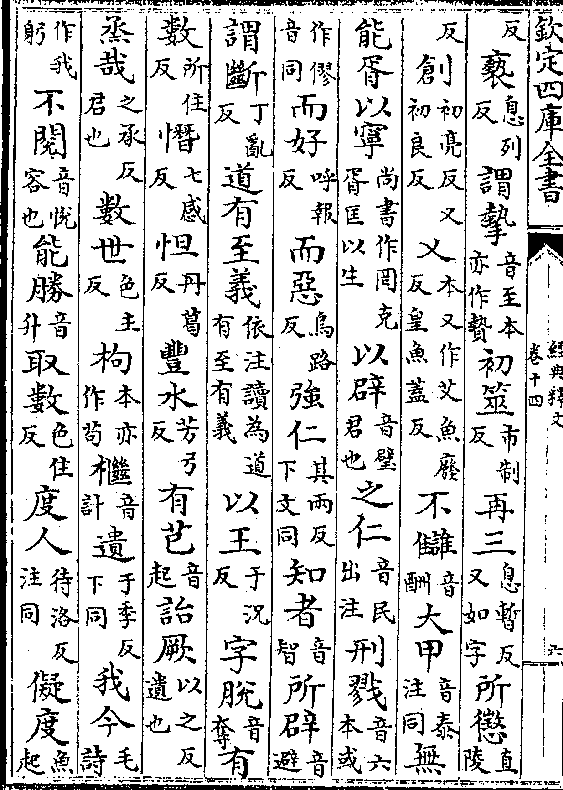 欽定四庫全書
經典釋文
卷十四
反褻息列反謂摯音至本亦作贄初筮市制反再三息暫反又如字所懲直陵
反創初亮反又初良反乂本又作艾魚廢反皇魚蓋反不讎音酬大甲音泰注同無
能胥以寧尚書作罔克胥匡以生以辟音璧君也之仁音民出注刑戮音六本或
作僇音同而好呼報反而惡烏路反強仁其兩反下文同知者音智所辟音避
謂斷丁亂反道有至義依注讀為道有至有義以王于況反字脫音奪有
數所住反憯七感反怛丹葛反豐水芳弓反有芑音起詒厥以之反遺也
烝哉之承反君也數世色主反枸本亦作苟檵音計遺于季反下同我今毛詩
作我躬不閱音悅容也能勝音升取數色住反度人待洛反注同儗度魚起